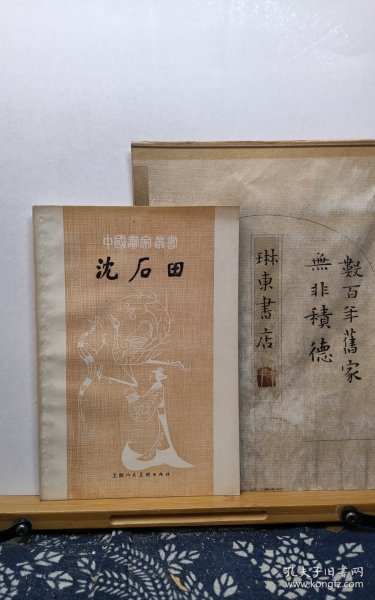 中國畫家叢書
沈石田
上海人民美術出版社
數百年舊家
無非積德
琳東書店
孔夫子旧书网
www.kongfz.com